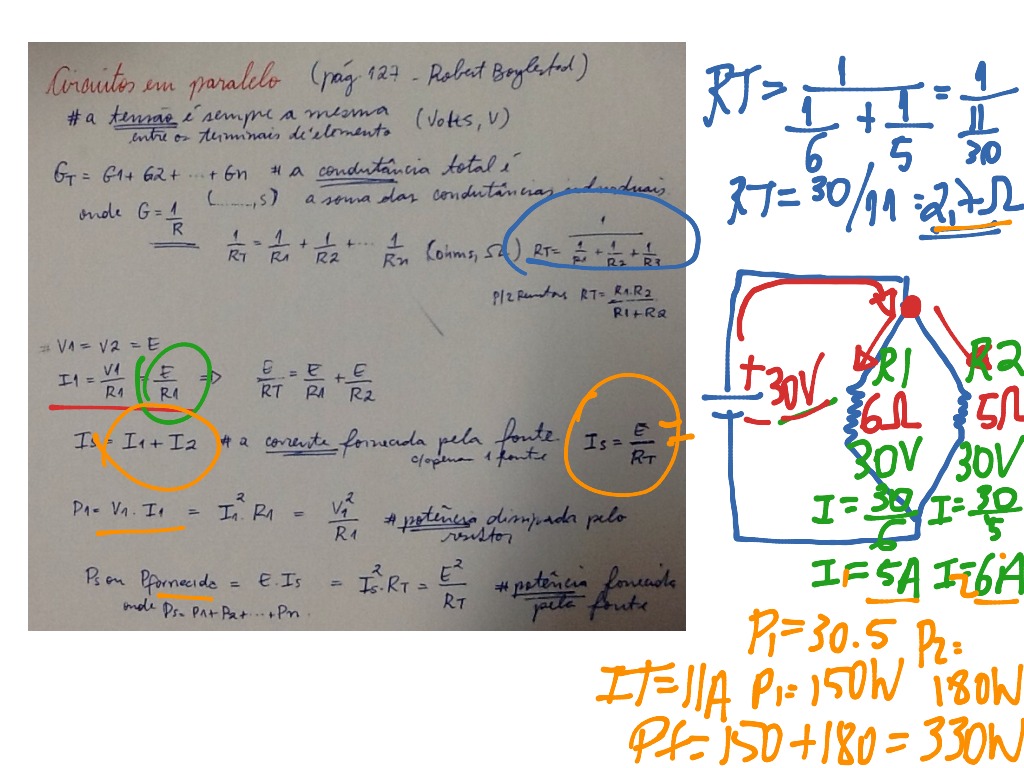 Circuitos em paralelo (pág 127 - Robert Boylestad)
# a tensão é sempre a mesma (Volts, V)
entre os terminais de elemento
GT = G1 + G2 + ... + Gn # a condutância total é
onde G = 1/R (........, s) a soma das condutâncias individuais.
1/RT = 1/R1 + 1/R2 + ... 1/Rn (ohms, Ω) RT = 1/(1/R1 + 1/R2 + 1/R3)
p/2 Resistores RT = R1.R2/R1+R2
V1 = V2 = E
I1 = V1/R1 = E/R1 => E/RT = E/R1 + E/R2
Is = I1 + I2 # a corrente fornecida pela fonte Is = E/RT
c/apenas 1 fonte
P1 = V1.I1 = I1².R1 = V1²/R1 # potência dissipada pelo
resistor
Ps ou Pfornecida = E.Is = Is².RT = E²/RT # potência fornecida
onde Ps = P1 + P2 + ... + Pn pela fonte
RT = 1/(1/6 + 1/5) = 1/(11/30)
RT = 30/11 = 2,7 Ω
+ 30V -
R1 R2
6Ω 5Ω
30V 30V
I = 30/6 I = 30/5
I1 = 5A I2 = 6A
P1 = 30.5 P2 =
IT = 11A P1 = 150W 180W
Pf = 150 + 180 = 330W